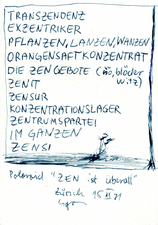 TRANSZENDENZ
EXZENTRIKER
PFLANZEN, LANZEN, WANZEN
ORANGENSAFTKONZENTRAT
DIE ZEN GEBOTE (nö, blöder
Witz)
ZENIT
ZENSUR
KONZENTRATIONSLAGER
ZENTRUMSPARTEI
IM GANZEN
ZENSI
Polaroid "ZEN ist überall"
Zürich 15 21